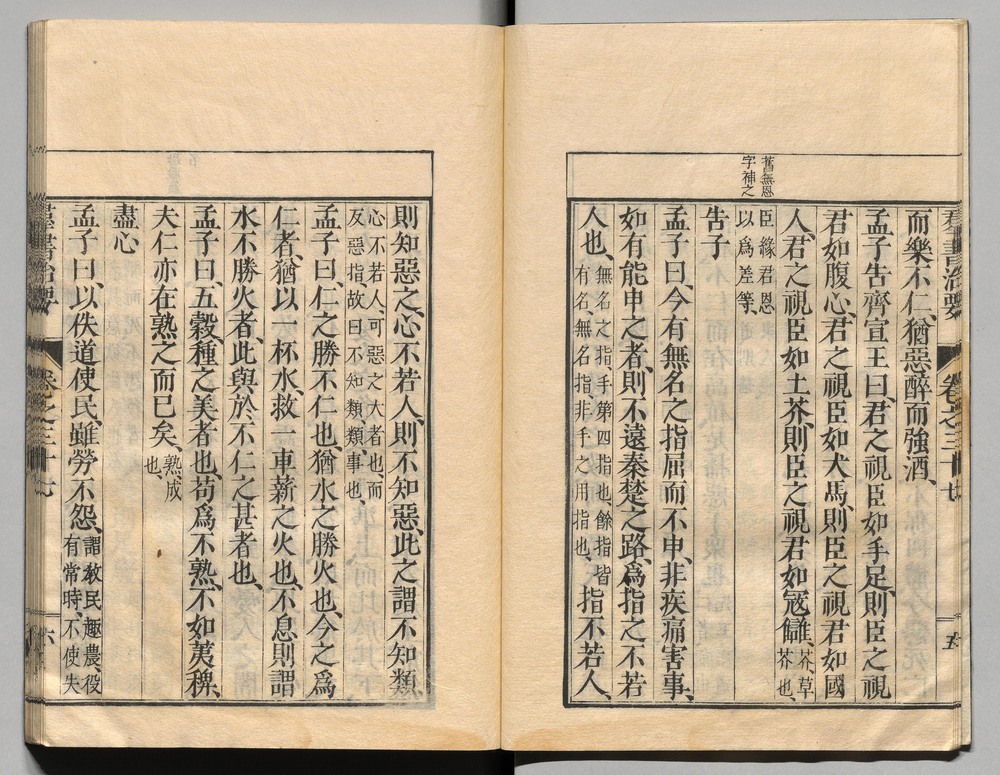 舊無恩
字補之
而樂不仁、猶惡醉而強酒、
孟子告齊宣王曰、君之視臣如手足、則臣之視
君如腹心、君之視臣如犬馬、則臣之視君如國
人、君之視臣如土芥、則臣之視君如寇讎、芥草芥也、
臣緣君恩以爲差等、
告子
孟子曰、今有無名之指屈而不申、非疾痛害事、
如有能申之者、則不遠秦楚之路、爲指之不若
人也、無名之指、手第四指也、餘指皆有名、無名指、非手之用指也、指不若人、
群書治要 卷之三十七 五
則知惡之、心不若人、則不知惡、此之謂不知類、
心不若人、可惡之大者也、而反惡指、故曰不知類、類、事也、
孟子曰、仁之勝不仁也、猶水之勝火也、今之爲
仁者、猶以一杯水、救一車薪之火也、不息則謂
水不勝火者、此與於不仁之甚者也、
孟子曰、五穀種之美者也、苟爲不熟、不如荑稗、
夫仁亦在熟之而已矣、熟成也、
盡心
孟子曰、以佚道使民、雖勞不怨、謂敎民趣農、役有常時、不使失
群書治要 卷之三十七 六